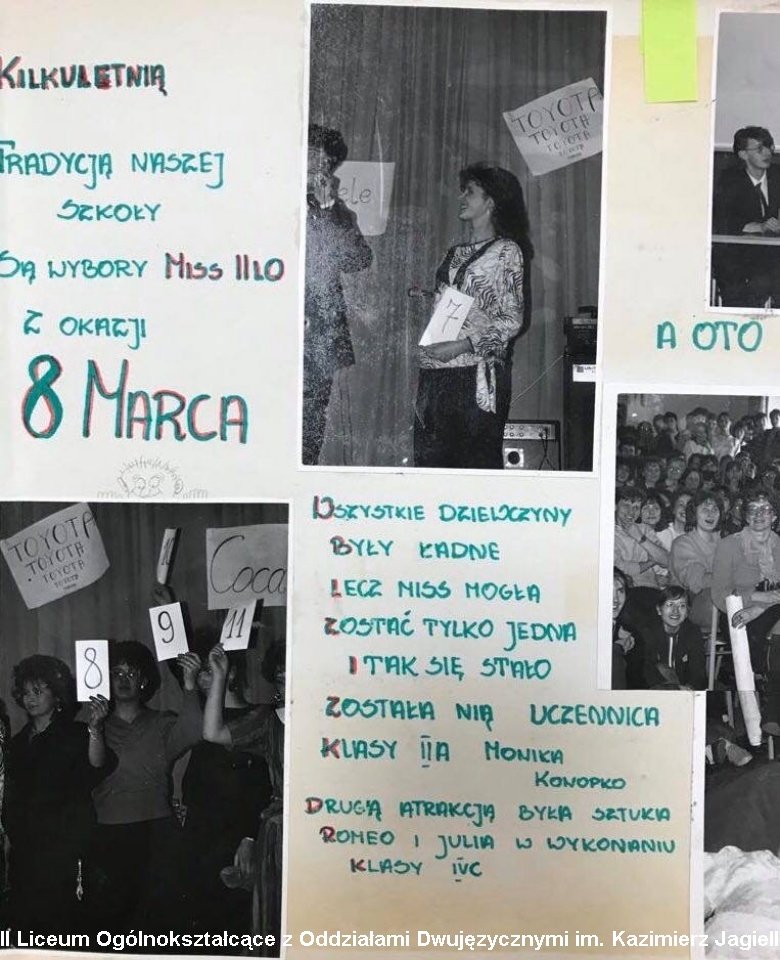 KILKULETNIĄ
TRADYCJĄ NASZEJ
SZKOŁY
SĄ WYBORY MISS IILO
Z OKAZJI
8 MARCA
TOYOTA
TOYOTA
TOYOTA
TOYOTA
ele
7
A OTO
TOYOTA
TOYOTA
TOYOTA
TOYOTA
Coca
8
9
11
WSZYSTKIE DZIEWCZYNY
BYŁY ŁADNE
LECZ MISS MOGŁA
ZOSTAĆ TYLKO JEDNA
I TAK SIĘ STAŁO
ZOSTAŁA NIĄ UCZENNICA
KLASY IIA MONIKA
KONOPKO
DRUGĄ ATRAKCJĄ BYŁA SZTUKA
ROMEO I JULIA W WYKONANIU
KLASY IVC
II Liceum Ogólnokształcące z Oddziałami Dwujęzycznymi im. Kazimierz Jagiell